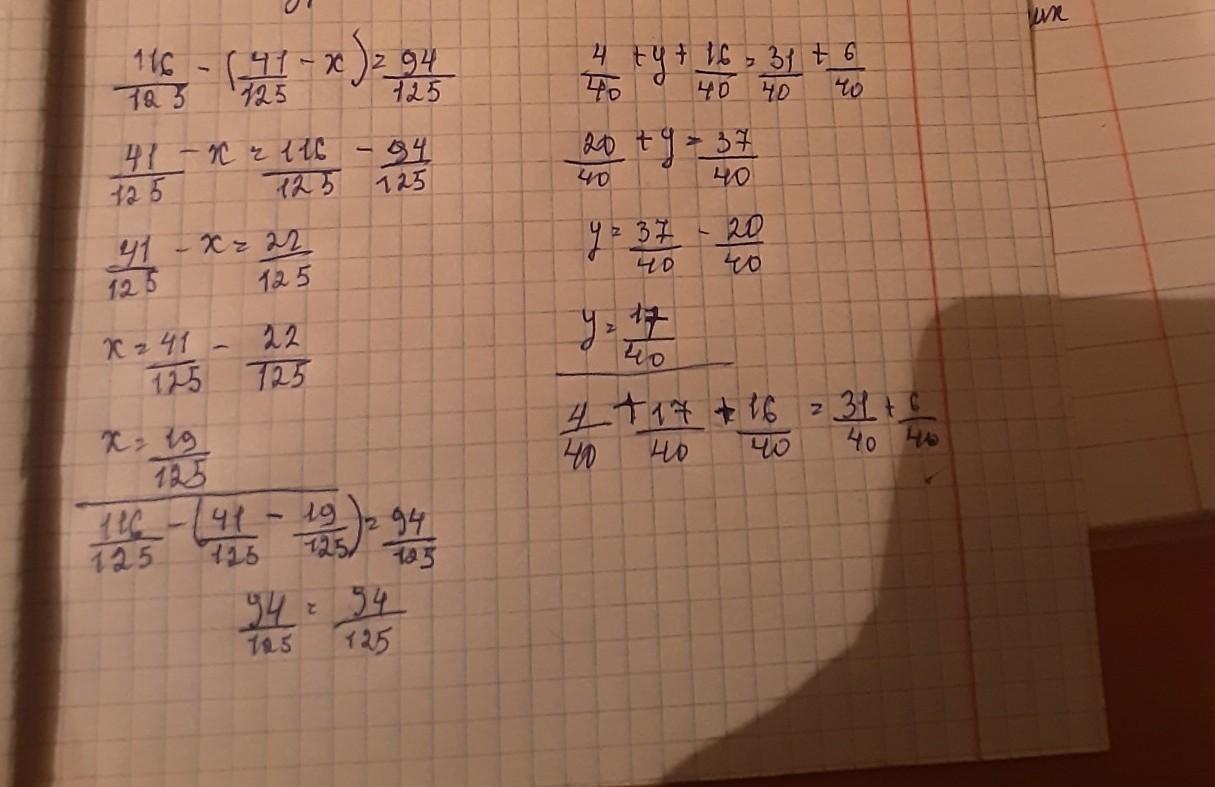 их
116/125 - (41/125 - x) = 94/125
41/125 - x = 116/125 - 94/125
41/125 - x = 22/125
x = 41/125 - 22/125
x = 19/125
116/125 - (41/125 - 19/125) = 94/125
94/125 = 94/125
4/40 + y + 16/40 = 31/40 + 6/40
20/40 + y = 37/40
y = 37/40 - 20/40
y = 17/40
4/40 + 17/40 + 16/40 = 31/40 + 6/40